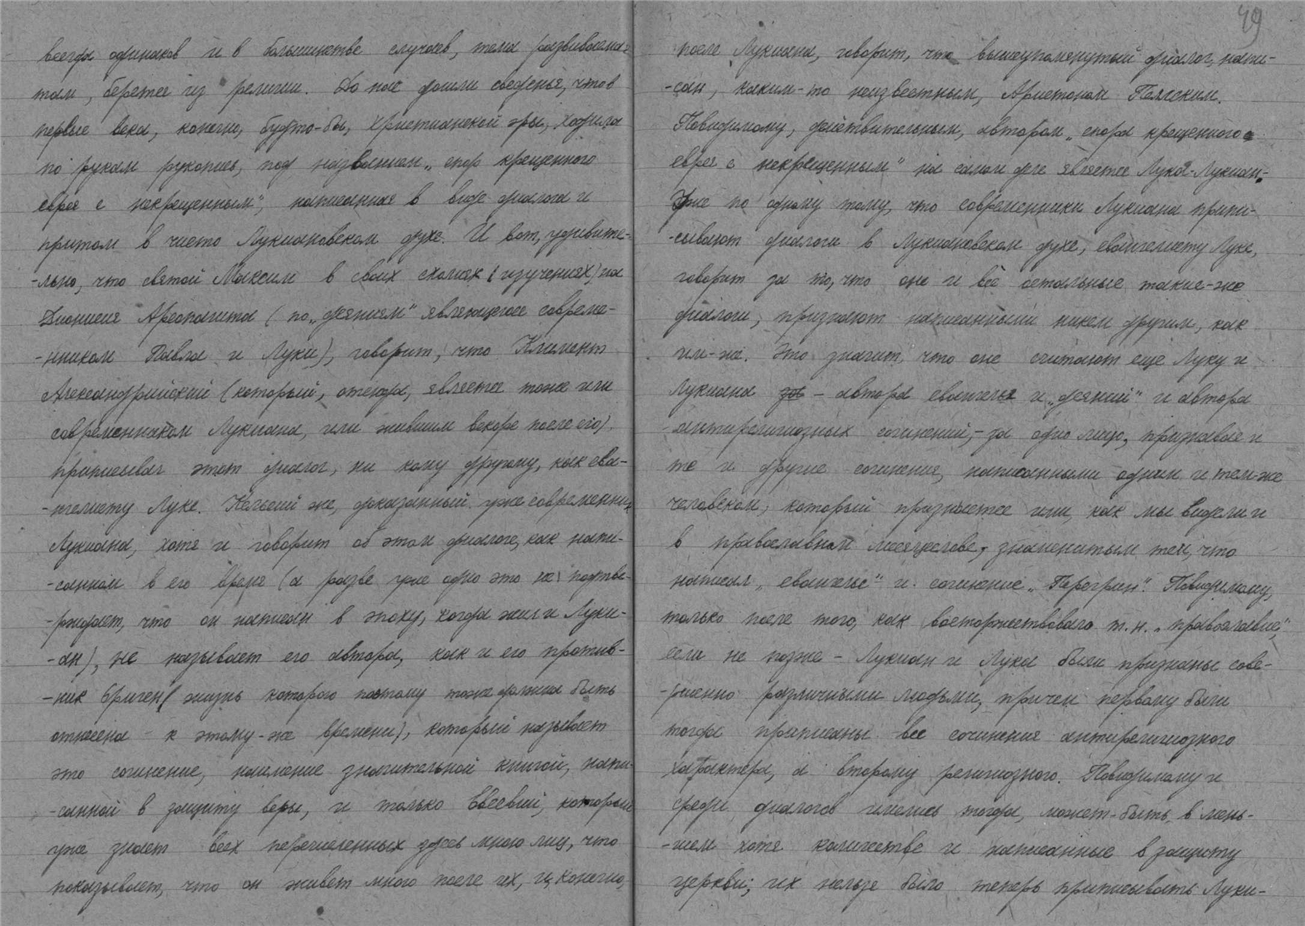 всегда одинаков и в большинстве случаев, тема развивается
там, берется из религии. До нас дошли сведенья, что в
первые века, конечно, будто-бы, христианской эры, ходила
по рукам рукопись, под названием „спор крещенного
еврея с некрещенным“, написанная в виде диалога и
притом в чисто Лукиановском духе. И вот, удивите-
-льно, что святой Максим в своих схолиях (изучениях) на
Дионисия Ареопагита (по „деяниям“ являющегося совреме-
-нником Павла и Луки), говорит, что Климент
Александрийский (который, отсюда, является тоже или
современником Лукиана, или жившим вскоре после его)
приписывал этот диалог, ни кому другому, как еван-
-гелисту Луке. Цельсий же, доказанный уже современник
Лукиана, хотя и говорит об этом диалоге, как напи-
-санном в его время (а разве уже одно это не подтве-
-рждает, что он написан в эпоху, когда жил и Луки-
-ан), не называет его автора, как и его против-
-ник Ориген (жизнь которого поэтому тоже должна быть
отнесена к этому-же времени), который называет
это сочинение, наименее значительной книгой, напи-
-санной в защиту веры, и только Евсевий, который
уже знает всех перечисленных здесь много лиц, что
показывает, что он живет много после их, и, конечно,
49
после Лукиана, говорит, что вышеупомянутый диалог, напи-
-сан, каким-то неизвестным, Аристоном Пелльским.
Повидимому, действительным, автором „спора крещенного
еврея с некрещенным“ на самом деле является Лука-Лукиан.
Уже по одному тому, что современники Лукиана припи-
-сывают диалоги в Лукиановском духе, евангелисту Луке,
говорит за то, что они и все остальные такие-же
диалоги, признают написанными никем другим, как
им-же. Это значит, что они считают еще Луку и
Лукиана за – автора евангелья и „деяний“ и автора
антирелигиозных сочинений, – за одно лицо, признавая и
те и другие сочинения, написанными одним и тем-же
человеком, который признается ими, как мы видели и
в православном месяцеслове, знаменитым тем, что
написал „евангелье“ и сочинение „Перегрин“. Повидимому,
только после того, как восторжествовало т. н. „православие“,
если не позже – Лукиан и Лука были признаны сове-
-ршенно различными людьми, причем первому были
тогда приписаны все сочинения антирелигиозного
характера, а второму религиозного. Повидимому и
среди диалогов имелись тогда, может-быть, в мень-
-шем хотя количестве и написанные в защиту
церкви; их нельзя было теперь приписывать Луки-